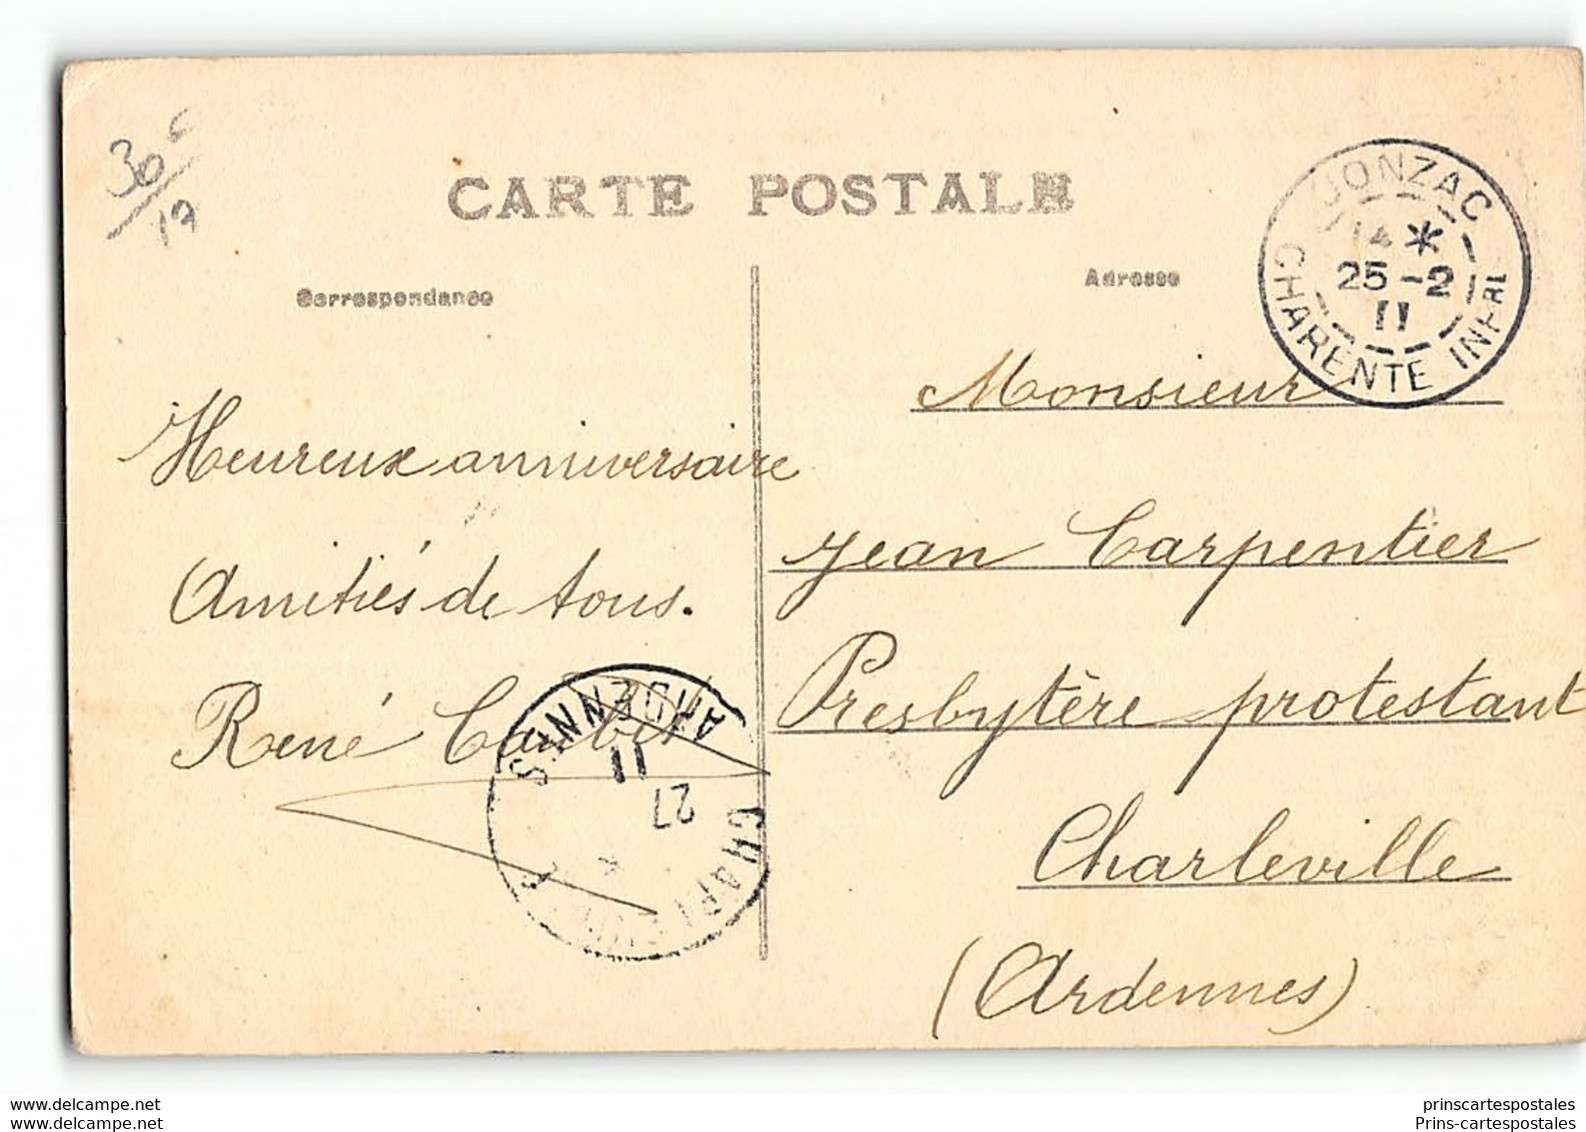 30c
17
CARTE POSTALE
Correspondance
Adresse
JONZAC
14 *
25-2
11
CHARENTE INFRE
Heureux anniversaire
Amitiés de tous.
René
Monsieur
Jean Carpentier
Presbytère protestant
Charleville
(Ardennes)
ARDENNES
11
27
www.delcampe.net
Prins-cartespostales
prinscartespostales
Prins-cartespostales